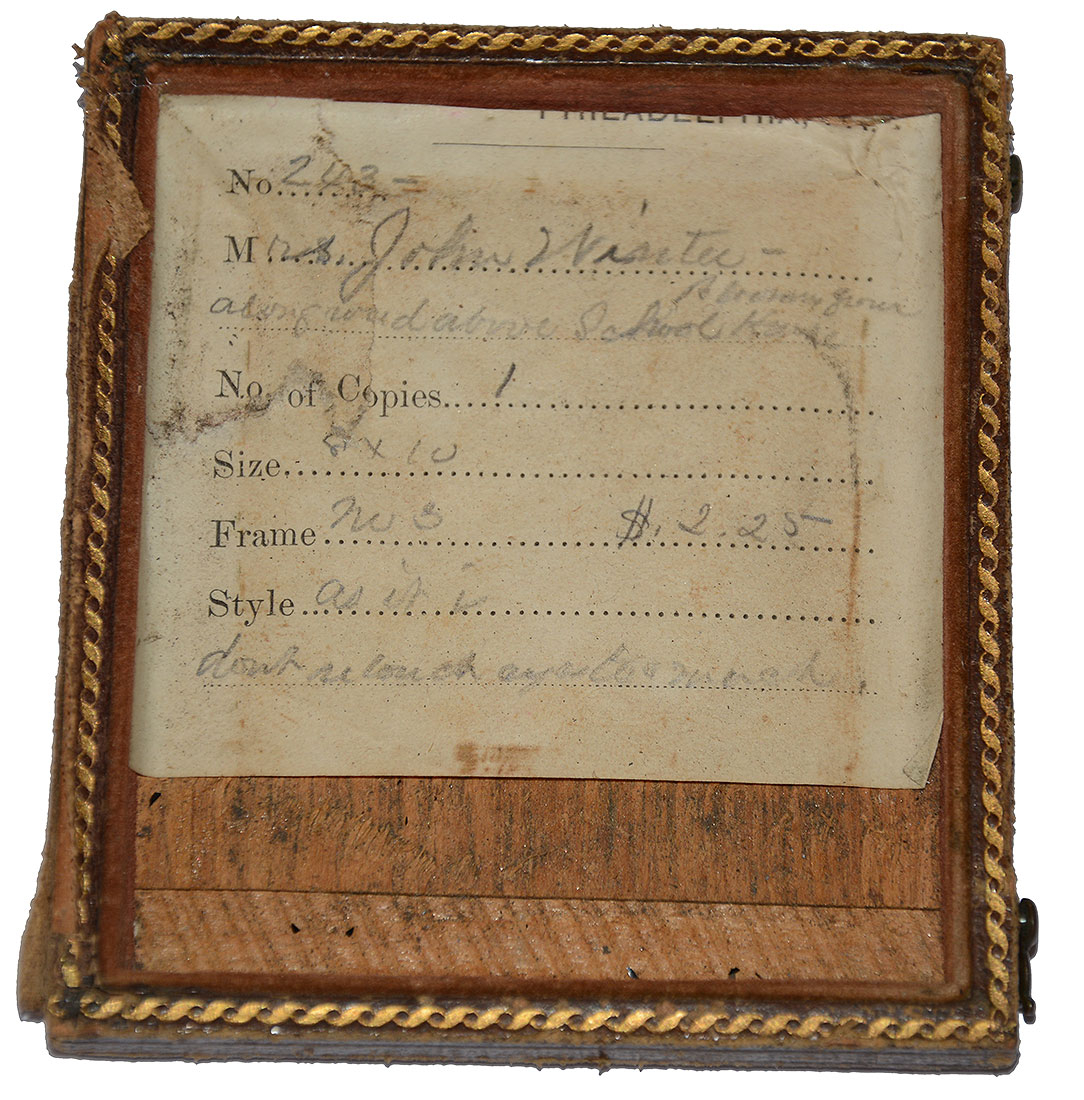 PHILADELPHIA,
No. 243 -
Mrs. John Wister -
along road above School House
No. of Copies 1
Size 8 x 10
Frame No 3 $. 2.25
Style as it is
dont retouch eyes too much.